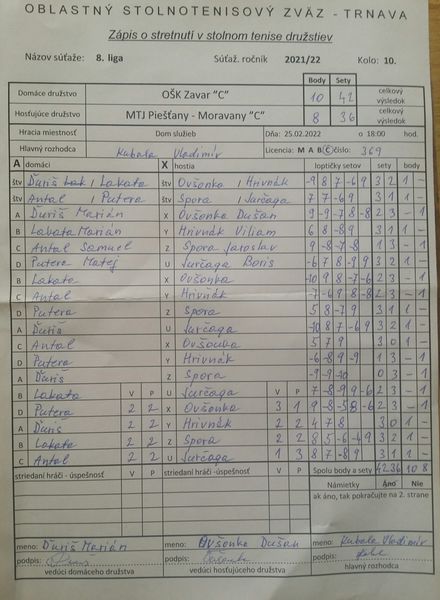 OBLASTNÝ STOLNOTENISOVÝ ZVÄZ - TRNAVA
Zápis o stretnutí v stolnom tenise družstiev
Názov súťaže: 8. liga Súťaž. ročník 2021/22 Kolo: 10.
Body Sety
Domáce družstvo OŠK Zavar "C" 10 42 celkový výsledok
Hosťujúce družstvo MTJ Piešťany - Moravany "C" 8 36 celkový výsledok
Hracia miestnosť Dom služieb Dňa: 25.02.2022 o 18:00 hod.
Hlavný rozhodca Kubala Vladimír Licencia: M A B C číslo: 369
A domáci X hostia loptičky setov sety body
štv Ďuriš / Lakata štv Ovšonka / Hrivnák -9 8 7 -6 9 3 2 1 -
štv Antal / Putera štv Špora / Jurčaga 7 7 -6 9 3 1 1 -
A Ďuriš Marián X Ovšonka Dušan -9 -7 8 -8 2 3 - 1
B Lakata Marián Y Hrivnák Viliam 6 8 -8 9 3 1 1 -
C Antal Samuel Z Špora Jaroslav 9 -8 -7 -8 1 3 - 1
D Putera Matej U Jurčaga Boris -6 7 8 -9 9 3 2 1 -
B Lakata X Ovšonka -10 9 8 -7 -6 2 3 - 1
C Antal Y Hrivnák -7 -6 9 8 -8 2 3 - 1
D Putera Z Špora 5 8 -7 9 3 1 1 -
A Ďuriš U Jurčaga -10 8 7 -6 9 3 2 1 -
C Antal X Ovšonka 5 7 9 3 0 1 -
D Putera Y Hrivnák -6 -8 9 -9 1 3 - 1
A Ďuriš Z Špora -9 -9 -10 0 3 - 1
B Lakata V P U Jurčaga V P 7 -8 9 9 -6 2 3 - 1
D Putera 2 2 X Ovšonka 3 1 9 -8 -5 8 -6 2 3 - 1
A Ďuriš 2 2 Y Hrivnák 2 2 4 7 8 3 0 1 -
B Lakata 2 2 Z Špora 2 2 8 5 -6 -4 9 3 2 1 -
C Antal 2 2 U Jurčaga 1 3 8 7 -8 9 3 1 1 -
striedaní hráči - úspešnosť V P striedaní hráči - úspešnosť V P Spolu body a sety 42 36 10 8
Námietky Áno Nie
ak áno, tak pokračujte na 2. strane
meno: Ďuriš Marián meno: Ovšonka Dušan meno: Kubala Vladimír
podpis: podpis: Ovšonka podpis:
vedúci domáceho družstva vedúci hosťujúceho družstva hlavný rozhodca